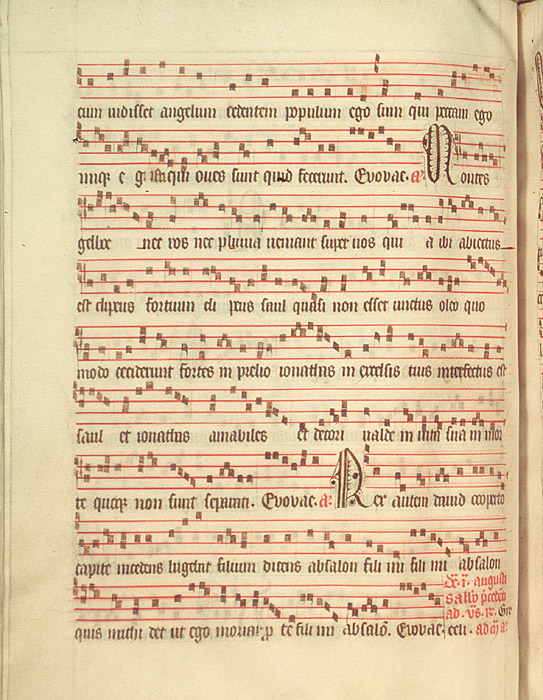 cum vidisset angelum cedentem populum ego sum qui peccavi ego
iniq; e g isti qui oves sunt quid fecerunt. Evovae. a. Montes
gelboe nec ros nec pluvia veniant super vos qui a ibi abiectus
est clipeus fortium cli peus saul quasi non esset unctus oleo quo
modo ceciderunt fortes in prelio ionathas in excelsis tuis interfectus est
saul et ionathas amabiles et decori valde in vita sua in mor
te quoq; non sunt separati. Evovae. a. Rex autem david cooperto
capite incedens lugebat filium dicens absalon fili mi fili mi absalon
quis michi det ut ego moriar p te fili mi absalō. Evovae. celi. ad